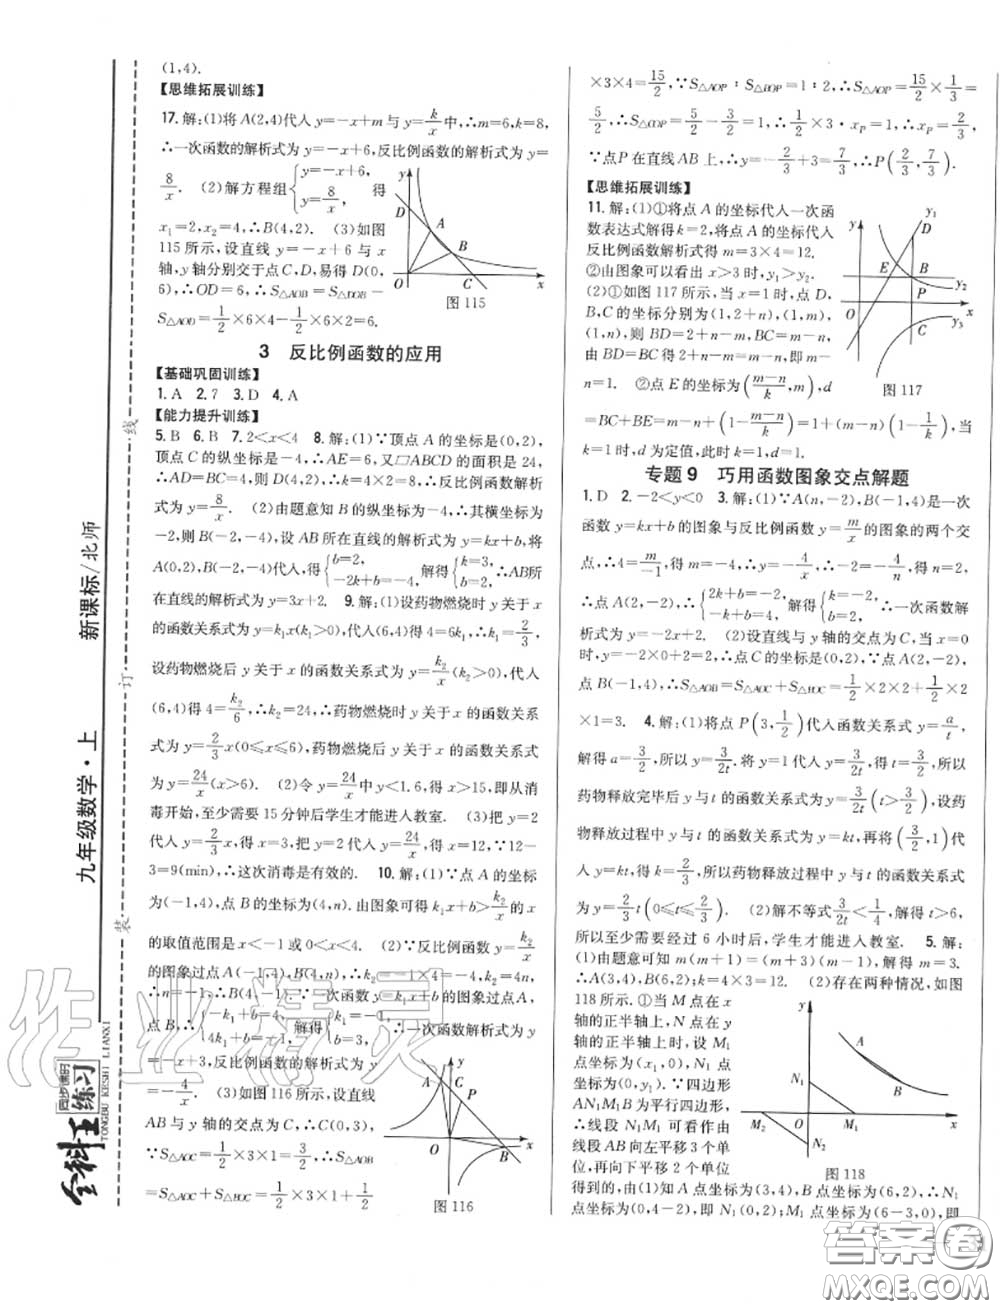 (1,4).
【思维拓展训练】
17.解:(1)将A(2,4)代入y=-x+m与y=k/x中,∴m=6,k=8,
∴一次函数的解析式为y=-x+6,反比例函数的解析式为y=
8/x. (2)解方程组{y=-x+6, y=8/x, 得
x₁=2,x₂=4,∴B(4,2). (3)如图
115所示,设直线y=-x+6与x
轴,y轴分别交于点C,D,易得D(0,
6),∴OD=6,∴S△AOB=S△DOB-
S△AOD=1/2×6×4-1/2×6×2=6.
图115
3 反比例函数的应用
【基础巩固训练】
1.A 2.7 3.D 4.A
【能力提升训练】
5.B 6.B 7.2<x<4 8.解:(1)∵顶点A的坐标是(0,2),
顶点C的纵坐标是-4,∴AE=6,又□ABCD的面积是24,
∴AD=BC=4,则D(4,2),∴k=4×2=8,∴反比例函数解析
式为y=8/x. (2)由题意知B的纵坐标为-4,∴其横坐标为
-2,则B(-2,-4),设AB所在直线的解析式为y=kx+b,将
A(0,2),B(-2,-4)代入,得{b=2, -2k+b=-4, 解得{k=3, b=2, ∴AB所
在直线的解析式为y=3x+2. 9.解:(1)设药物燃烧时y关于x
的函数关系式为y=k₁x(k₁>0),代入(6,4)得4=6k₁,∴k₁=2/3,
设药物燃烧后y关于x的函数关系式为y=k₂/x(k₂>0),代入
(6,4)得4=k₂/6,∴k₂=24,∴药物燃烧时y关于x的函数关系
式为y=2/3x(0≤x≤6),药物燃烧后y关于x的函数关系式
为y=24/x(x>6). (2)令y=24/x中y<1.6,得x>15,即从消
毒开始,至少需要15分钟后学生才能进入教室. (3)把y=2
代入y=2/3x,得x=3,把y=2代入y=24/x,得x=12,∵12-
3=9(min),∴这次消毒是有效的. 10.解:(1)∵点A的坐标
为(-1,4),点B的坐标为(4,n).由图象可得k₁x+b>k₂/x的x
的取值范围是x<-1或0<x<4. (2)∵反比例函数y=k₂/x
的图象过点A(-1,4),B(4,n),∴k₂=-1×4=-4,k₂=4n,
∴n=-1,∴B(4,-1).∵一次函数y=k₁x+b的图象过点A,
点B,∴{-k₁+b=4, 4k₁+b=-1, 解得{k₁=-1, b=3, ∴一次函数解析式为y=
-x+3,反比例函数的解析式为y=
-4/x. (3)如图116所示,设直线
AB与y轴的交点为C,∴C(0,3),
∵S△AOC=1/2×3×1=3/2,∴S△AOB
=S△AOC+S△BOC=1/2×3×1+1/2
图116
×3×4=15/2,∵S△AOP:S△BOP=1:2,∴S△AOP=15/2×1/3=
5/2,∴S△COP=5/2-3/2=1,∴1/2×3·xP=1,∴xP=2/3,
∵点P在直线AB上,∴y=-2/3+3=7/3,∴P(2/3,7/3).
【思维拓展训练】
11.解:(1)①将点A的坐标代入一次函
数表达式解得k=2,将点A的坐标代入
反比例函数解析式得m=3×4=12.
②由图象可以看出x>3时,y₁>y₂.
(2)①如图117所示,当x=1时,点D,
B,C的坐标分别为(1,2+n),(1,m),
(1,n),则BD=2+n-m,BC=m-n,
由BD=BC得2+n-m=m-n,即m-
n=1. ②点E的坐标为((m-n)/k,m),d
=BC+BE=m-n+(1-(m-n)/k)=1+(m-n)(1-1/k),当
k=1时,d为定值,此时k=1,d=1.
图117
专题9 巧用函数图象交点解题
1.D 2.-2<y<0 3.解:(1)∵A(n,-2),B(-1,4)是一次
函数y=kx+b的图象与反比例函数y=m/x的图象的两个交
点,∴4=m/-1,得m=-4,∴y=-4/x,∴-2=-4/n,得n=2,
∴点A(2,-2),∴{2k+b=-2, -k+b=4, 解得{k=-2, b=2, ∴一次函数解
析式为y=-2x+2. (2)设直线与y轴的交点为C,当x=0
时,y=-2×0+2=2,∴点C的坐标是(0,2),∵点A(2,-2),
点B(-1,4),∴S△AOB=S△AOC+S△BOC=1/2×2×2+1/2×2
×1=3. 4.解:(1)将点P(3,1/2)代入函数关系式y=a/t,
解得a=3/2,∴y=3/2t.将y=1代入y=3/2t,得t=3/2,所以
药物释放完毕后y与t的函数关系式为y=3/2t(t>3/2),设药
物释放过程中y与t的函数关系式为y=kt,再将(3/2,1)代
入y=kt,得k=2/3,所以药物释放过程中y与t的函数关系式
为y=2/3t(0≤t≤2/3). (2)解不等式3/2t<1/4,解得t>6,
所以至少需要经过6小时后,学生才能进入教室. 5.解:
(1)由题意可知m(m+1)=(m+3)(m-1).解得m=3.
∴A(3,4),B(6,2);k=4×3=12. (2)存在两种情况,如图
118所示.①当M点在x
轴的正半轴上,N点在y
轴的正半轴上时,设M₁
点坐标为(x₁,0),N₁点
坐标为(0,y₁).∵四边形
AN₁M₁B为平行四边形,
∴线段N₁M₁可看作由
线段AB向左平移3个单
位,再向下平移2个单位
图118
得到的,由(1)知A点坐标为(3,4),B点坐标为(6,2),∴N₁
点坐标为(0,4-2),即N₁(0,2);M₁点坐标为(6-3,0),即
九年级数学·上
新课标/北师
装·订·线
全科王
同步课时
练习
TONGBU KESHI LIANXI
作业精灵
答案圈
MXQE.COM